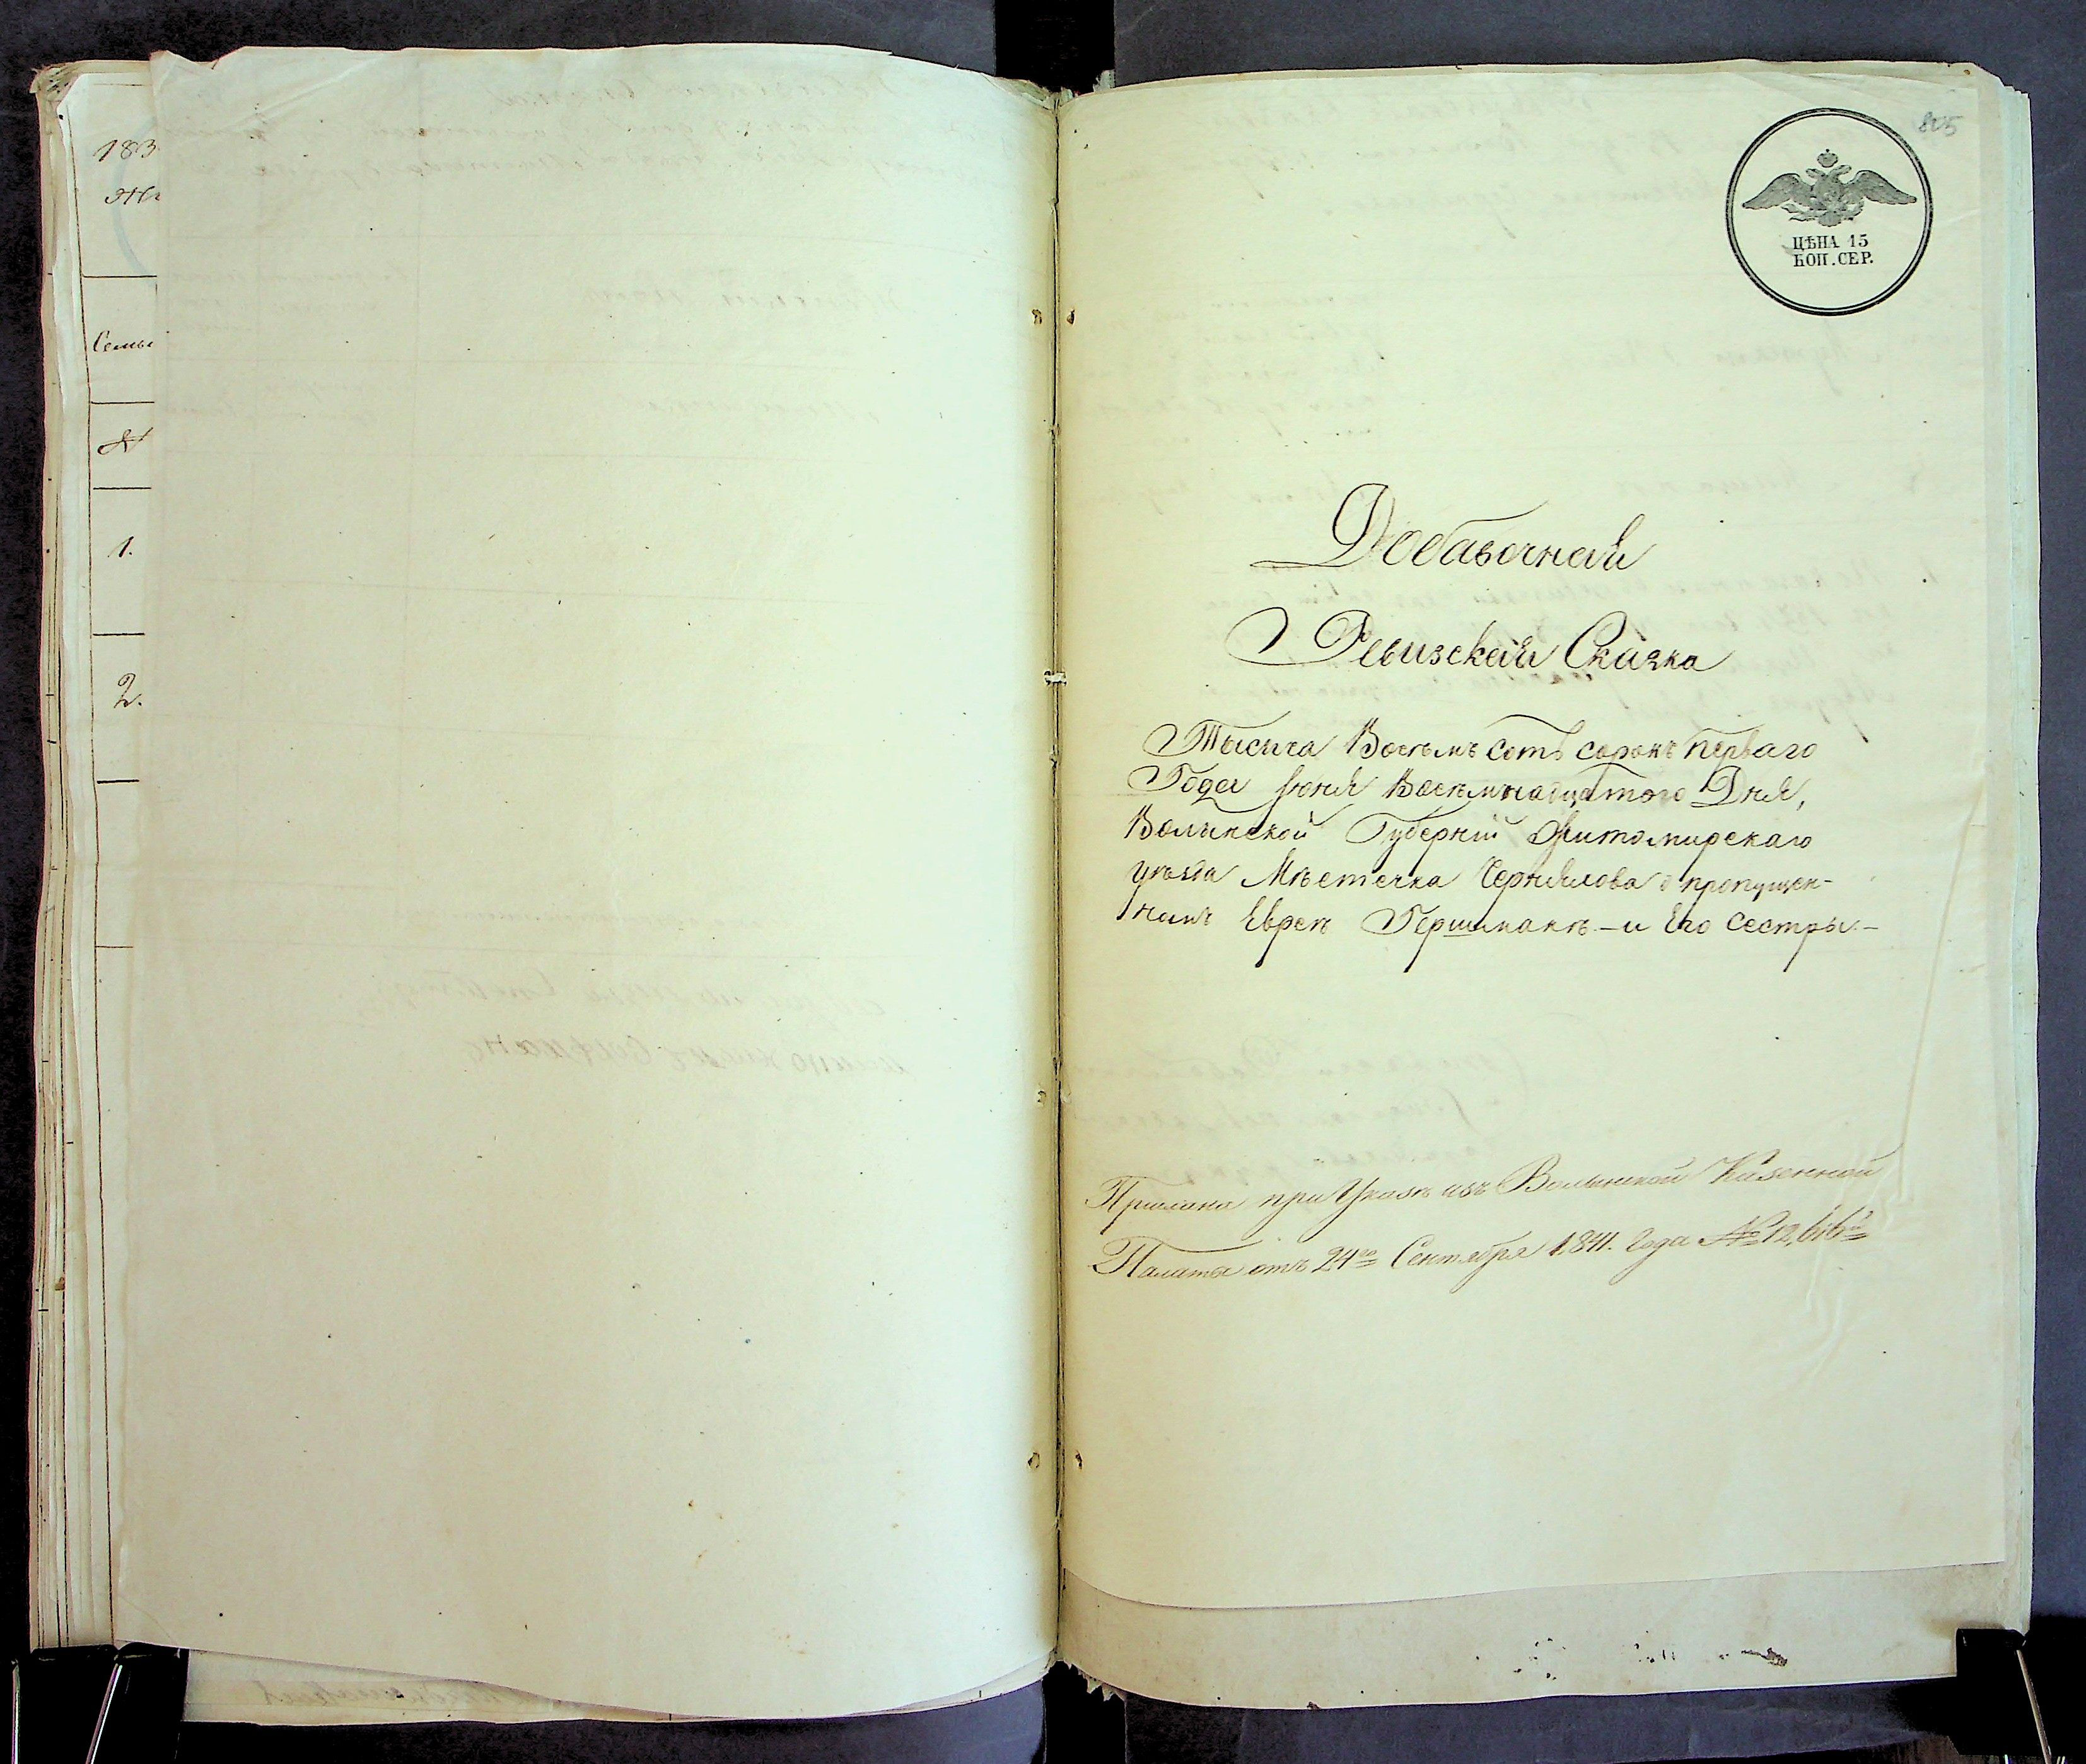 183
Семьи
№
1.
2.
805
ЦѢНА 15
КОП. СЕР.
Добавочная
Ревизская Сказка
Тысяча Восемь сотъ сорокъ перваго
Года Іюня Восемнадцатого Дня,
Волынской Губерніи Житомирскаго
уѣзда Мѣстечка Чернялова о пропущен-
номъ Евреѣ Гершманѣ - и Его Сестры. -
Прислана при Указѣ изъ Волынской Казенной
Палаты отъ 24го Сентября 1841. Года № 12,616